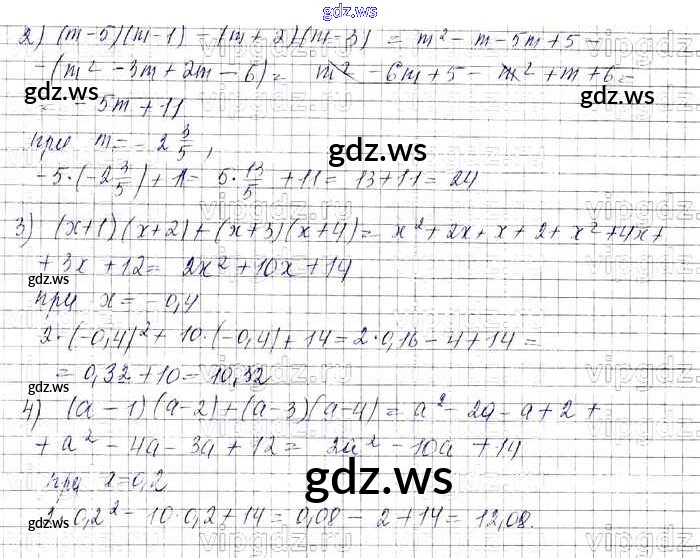 gdz.ws
2) (m-5)(m-1) - (m+2)(m-3) = m² - m - 5m + 5 -
- (m² - 3m + 2m - 6) = m² - 6m + 5 - m² + m + 6 =
= - 5m + 11
при m = -2 3/5,
-5·(-2 3/5) + 11 = 5·13/5 + 11 = 13 + 11 = 24
3) (x+1)(x+2) + (x+3)(x+4) = x² + 2x + x + 2 + x² + 4x +
+ 3x + 12 = 2x² + 10x + 14
при x = -0,4
2·(-0,4)² + 10·(-0,4) + 14 = 2·0,16 - 4 + 14 =
= 0,32 + 10 = 10,32
4) (a-1)(a-2) + (a-3)(a-4) = a² - 2a - a + 2 +
+ a² - 4a - 3a + 12 = 2a² - 10a + 14
при x = 0,2
2·0,2² - 10·0,2 + 14 = 0,08 - 2 + 14 = 12,08.